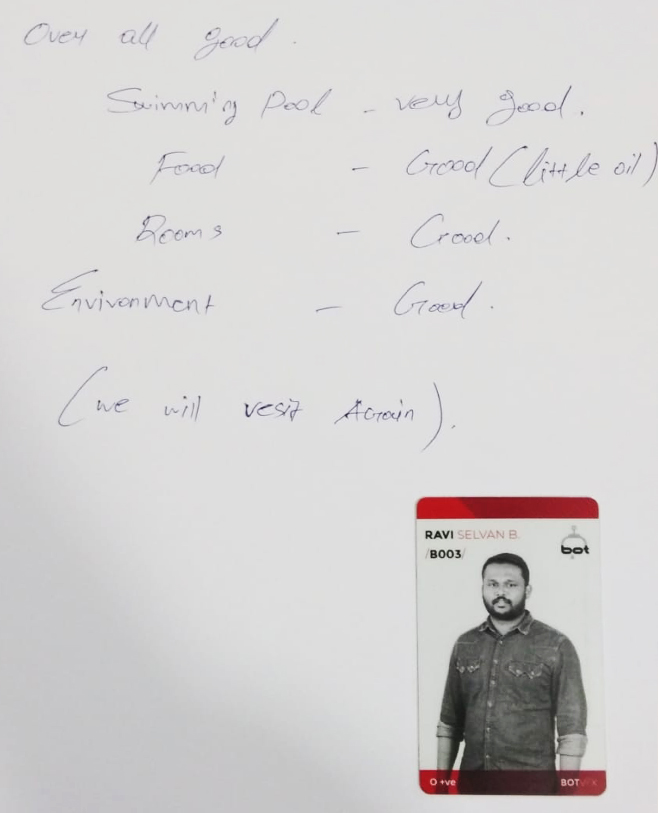 Over all good.
Swimming Pool - very good.
Food - Good (little oil)
Rooms - Good.
Environment - Good.
(we will vesit Again).
RAVI SELVAN B.
/B003/
bot
O +ve BOTVFX